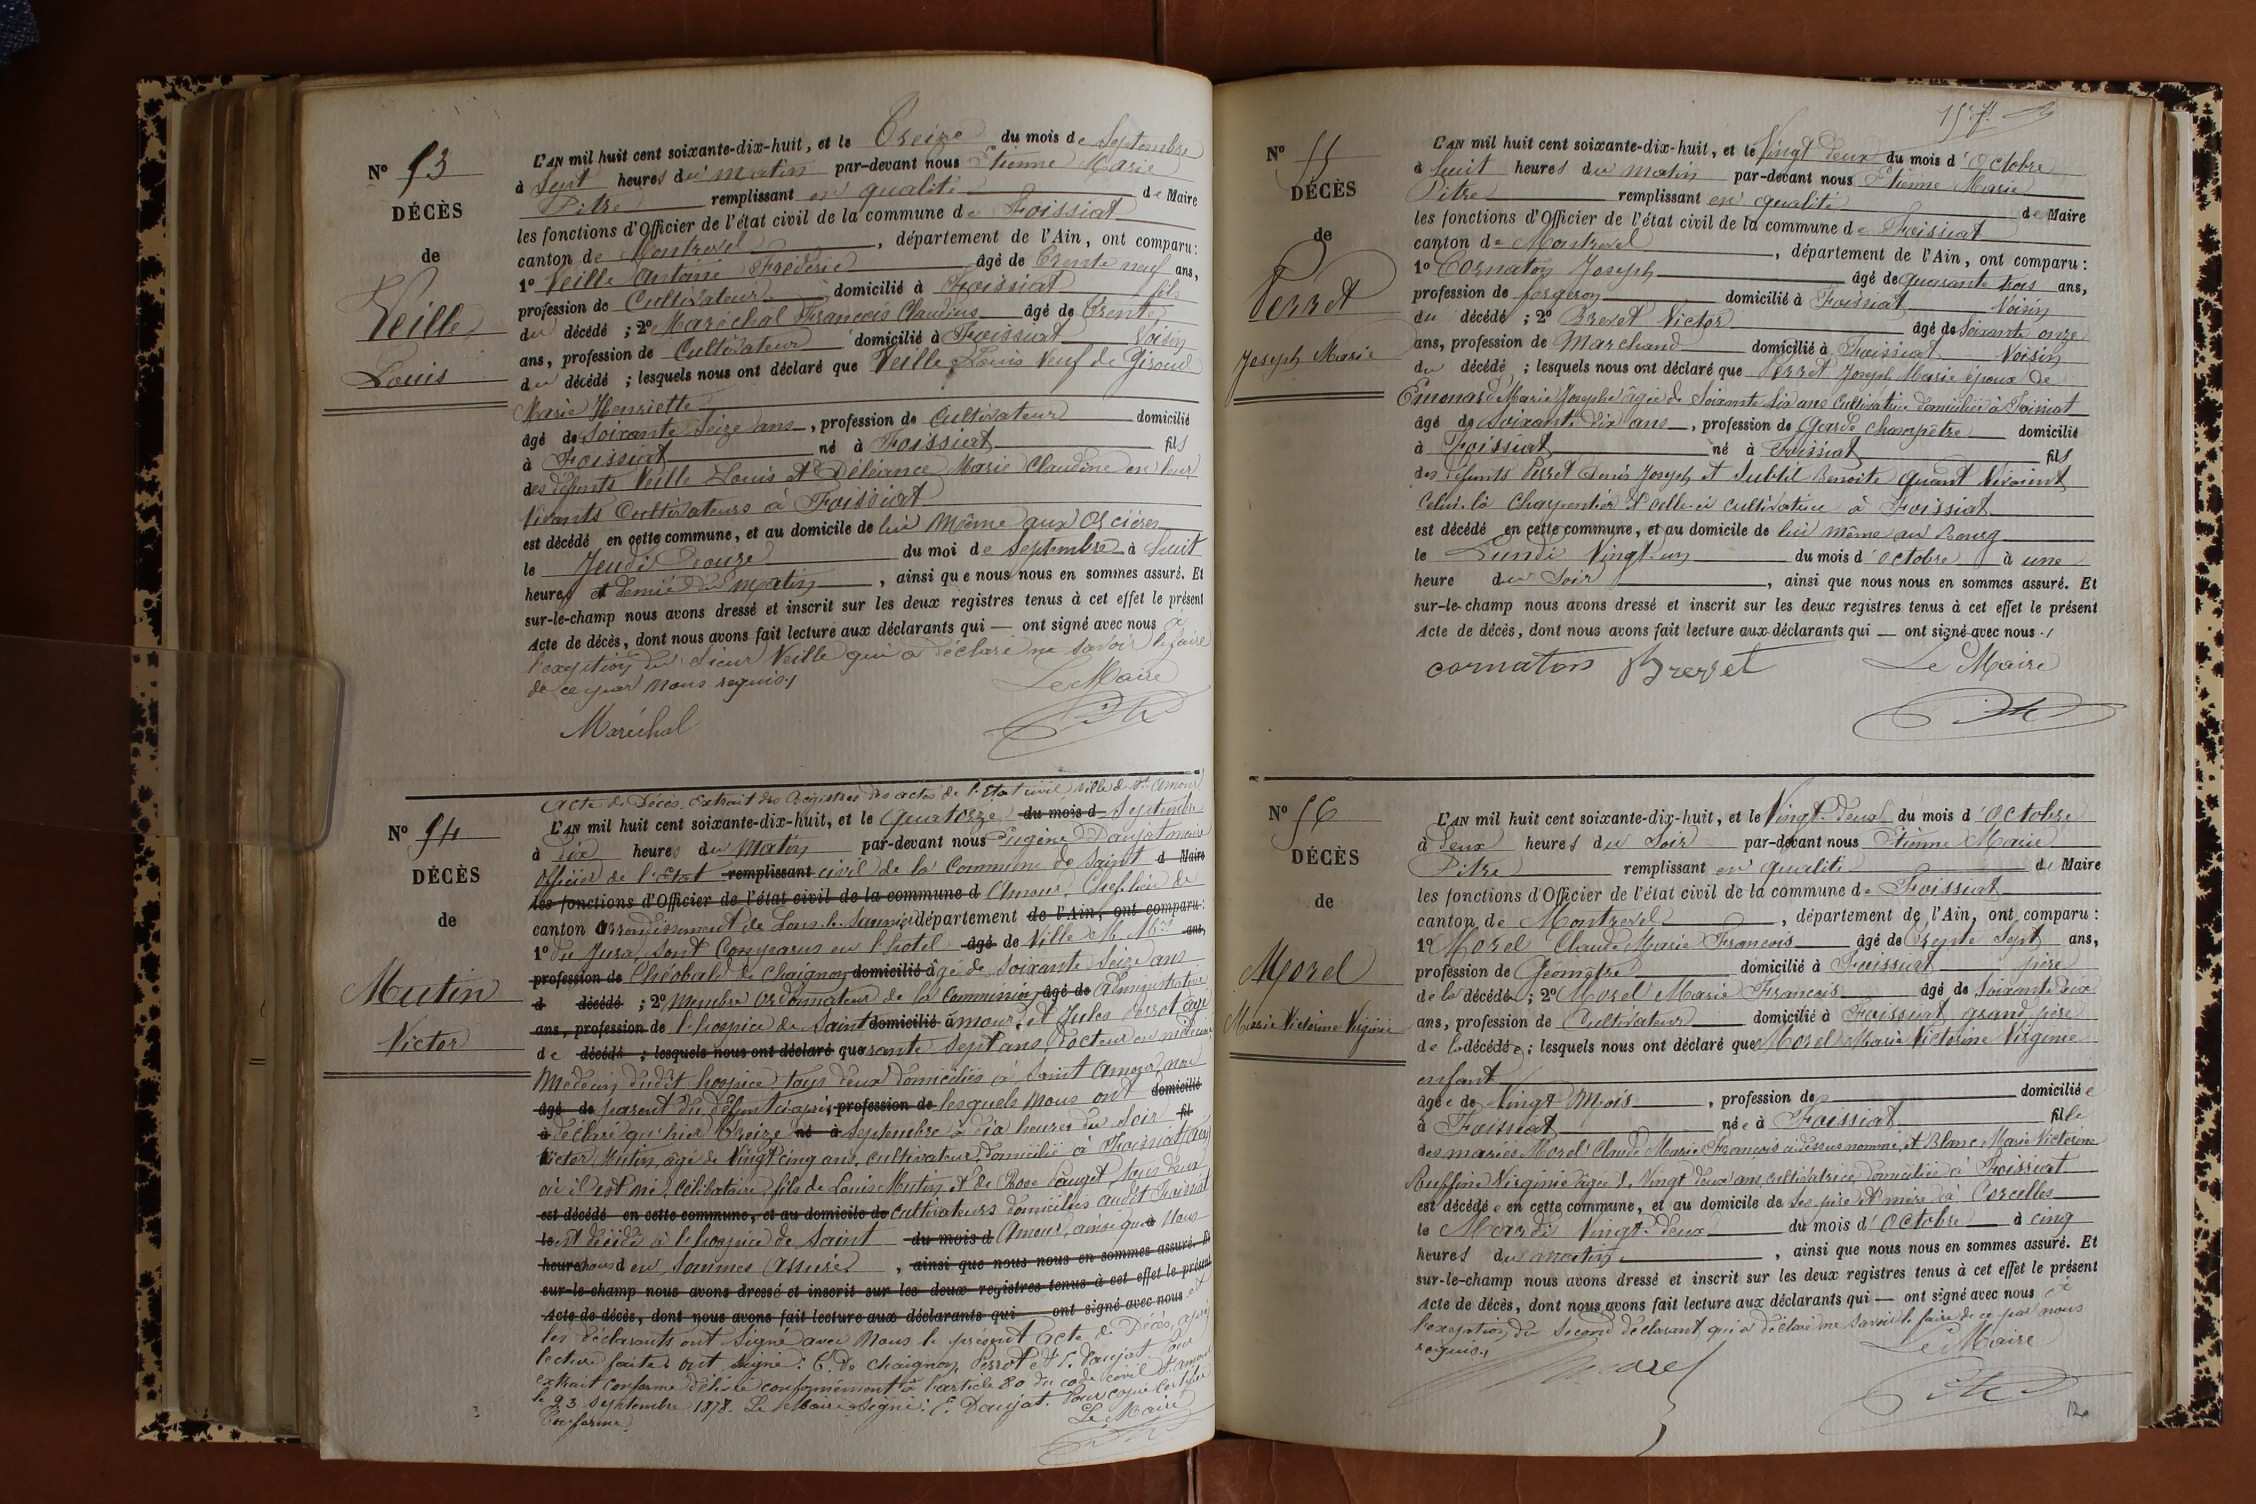 N° 53
DÉCÈS
de
Veille
Louis
L'AN mil huit cent soixante-dix-huit, et le Treize du mois de Septembre
à Sept heures du matin par-devant nous Etienne Marie
Pitre remplissant en qualité de Maire
les fonctions d'Officier de l'état civil de la commune de Foissiat
canton de Montrevel, département de l'Ain, ont comparu :
1° Veille Antoine Frédéric âgé de Trente neuf ans,
profession de Cultivateur domicilié à Foissiat fils
du décédé ; 2° Maréchal François Claudius âgé de Trente
ans, profession de Cultivateur domicilié à Foissiat Voisin
du décédé ; lesquels nous ont déclaré que Veille Louis Veuf de Giroud
Marie Henriette
âgé de Soixante Seize ans, profession de Cultivateur domicilié
à Foissiat né à Foissiat fils
des défunts Veille Louis et Déléance Marie Claudine en leur
Vivants Cultivateurs à Foissiat
est décédé en cette commune, et au domicile de lui même aux
le Jeudi Douze du moi de Septembre à huit
heures et demie du matin, ainsi que nous nous en sommes assuré. Et
sur-le-champ nous avons dressé et inscrit sur les deux registres tenus à cet effet le présent
Acte de décès, dont nous avons fait lecture aux déclarants qui — ont signé avec nous à
l'exception du Sieur Veille qui a déclaré ne savoir le faire
de ce par nous requis
Le Maire
Maréchal
N° 54
DÉCÈS
de
Mutin
Victor
Acte de Décès. Extrait des Registres des actes de l'Etat civil ville de St Amour
L'AN mil huit cent soixante-dix-huit, et le Quatorze du mois d Septembre
à dix heures du Matin par-devant nous Eugène Daujat maire
Officier de l'Etat remplissant civil de la Commune de Saint d Maire
les fonctions d'Officier de l'état civil de la commune d Amour, Chef lieu de
canton arrondissement de Lons-le-Saunier département de l'Ain, ont comparu :
1° du Jura, sont Comparus en l'hotel âgé de Ville M. Mrs ans,
profession de Théobald de Chaignon domicilié âgé de Soixante Seize ans
d décédé ; 2° Membre Ordonnateur de la Commission âgé de administrative
ans, profession de l'hospice de Saint domicilié à Amour, et Jules Perrot âgé
de décédé ; lesquels nous ont déclaré quarante Sept ans, Docteur en médecine
Médecin dudit hospice tous deux Domiciliés à Saint Amour, non
âgé de parent du défunt ci après, profession de lesquels Nous ont domicilié
à déclaré qu'hier Treize né à Septembre à dix heures du Soir fil
Victor Mutin, âgé de Vingt cinq ans, cultivateur, domicilié à Foissiat (Ain)
où il est né, célibataire, fils de Louis Mutin et de Rose Pauget, tous deux
est décédé en cette commune, et au domicile de cultivateurs domiciliés audit Foissiat
le est décédé à l'hospice de Saint du mois d Amour, ainsi que Nous
heure nous d en Sommes Assurés, ainsi que nous nous en sommes assuré. Et
sur-le-champ nous avons dressé et inscrit sur les deux registres tenus à cet effet le présent
Acte de décès, dont nous avons fait lecture aux déclarants qui ont signé avec nous et
les déclarants ont signé avec Nous le présent acte de Décès, après
lecture faite. Ont signé : T. de Chaignon, Perrot et E. Daujat. Pour
extrait conforme délivré conformément à l'article 80 du code civil St Amour
le 23 Septembre 1878. Le Maire Signé : E. Daujat. Pour copie certifiée
Conforme
Le Maire
N° 55
DÉCÈS
de
Perret
Joseph Marie
L'AN mil huit cent soixante-dix-huit, et le Vingt deux du mois d'Octobre
à huit heures du matin par-devant nous Etienne Marie
Pitre remplissant en qualité de Maire
les fonctions d'Officier de l'état civil de la commune de Foissiat
canton de Montrevel, département de l'Ain, ont comparu :
1° Cornaton Joseph âgé de quarante trois ans,
profession de forgeron domicilié à Foissiat Voisin
du décédé ; 2° Brevet Victor âgé de Soixante onze
ans, profession de Marchand domicilié à Foissiat Voisin
du décédé ; lesquels nous ont déclaré que Perret Joseph Marie époux de
Emonard Marie Josephe âgée de Soixante Six ans Cultivatrice domiciliée à Foissiat
âgé de Soixante Dix ans, profession de Garde champêtre domicilié
à Foissiat né à Foissiat fils
des défunts Perret Denis Joseph et Subtil Benoite quant Vivaient
Celui-là Charpentier & celle-ci cultivatrice à Foissiat
est décédé en cette commune, et au domicile de lui même au Bourg
le Lundi Vingt un du mois d'Octobre à une
heure du Soir, ainsi que nous nous en sommes assuré. Et
sur-le-champ nous avons dressé et inscrit sur les deux registres tenus à cet effet le présent
Acte de décès, dont nous avons fait lecture aux déclarants qui — ont signé avec nous
cornaton Brevet Le Maire
N° 56
DÉCÈS
de
Morel
Marie Victorine Virginie
L'AN mil huit cent soixante-dix-huit, et le Vingt-deux du mois d'Octobre
à Deux heures du Soir par-devant nous Etienne Marie
Pitre remplissant en qualité de Maire
les fonctions d'Officier de l'état civil de la commune de Foissiat
canton de Montrevel, département de l'Ain, ont comparu :
1° Morel Claude Marie François âgé de Trente Sept ans,
profession de Géomètre domicilié à Foissiat père
de la décédée ; 2° Morel Marie François âgé de Soixante dix
ans, profession de Cultivateur domicilié à Foissiat grand père
de la décédée ; lesquels nous ont déclaré que Morel Marie Victorine Virginie
enfant
âgée de Vingt Mois, profession de domiciliée
à Foissiat née à Foissiat fille
des mariés Morel Claude Marie François ci dessus nommé, et Blanc Marie Victorine
Ruffine Virginie âgée de Vingt deux ans, cultivatrice, domiciliée à Foissiat
est décédée en cette commune, et au domicile de Ses père et mère à Corcelles
le Mardi Vingt-deux du mois d'Octobre à cinq
heures du matin, ainsi que nous nous en sommes assuré. Et
sur-le-champ nous avons dressé et inscrit sur les deux registres tenus à cet effet le présent
Acte de décès, dont nous avons fait lecture aux déclarants qui — ont signé avec nous à
l'exception du Second déclarant qui a déclaré ne savoir le faire de ce par nous
requis
Le Maire
Morel
12